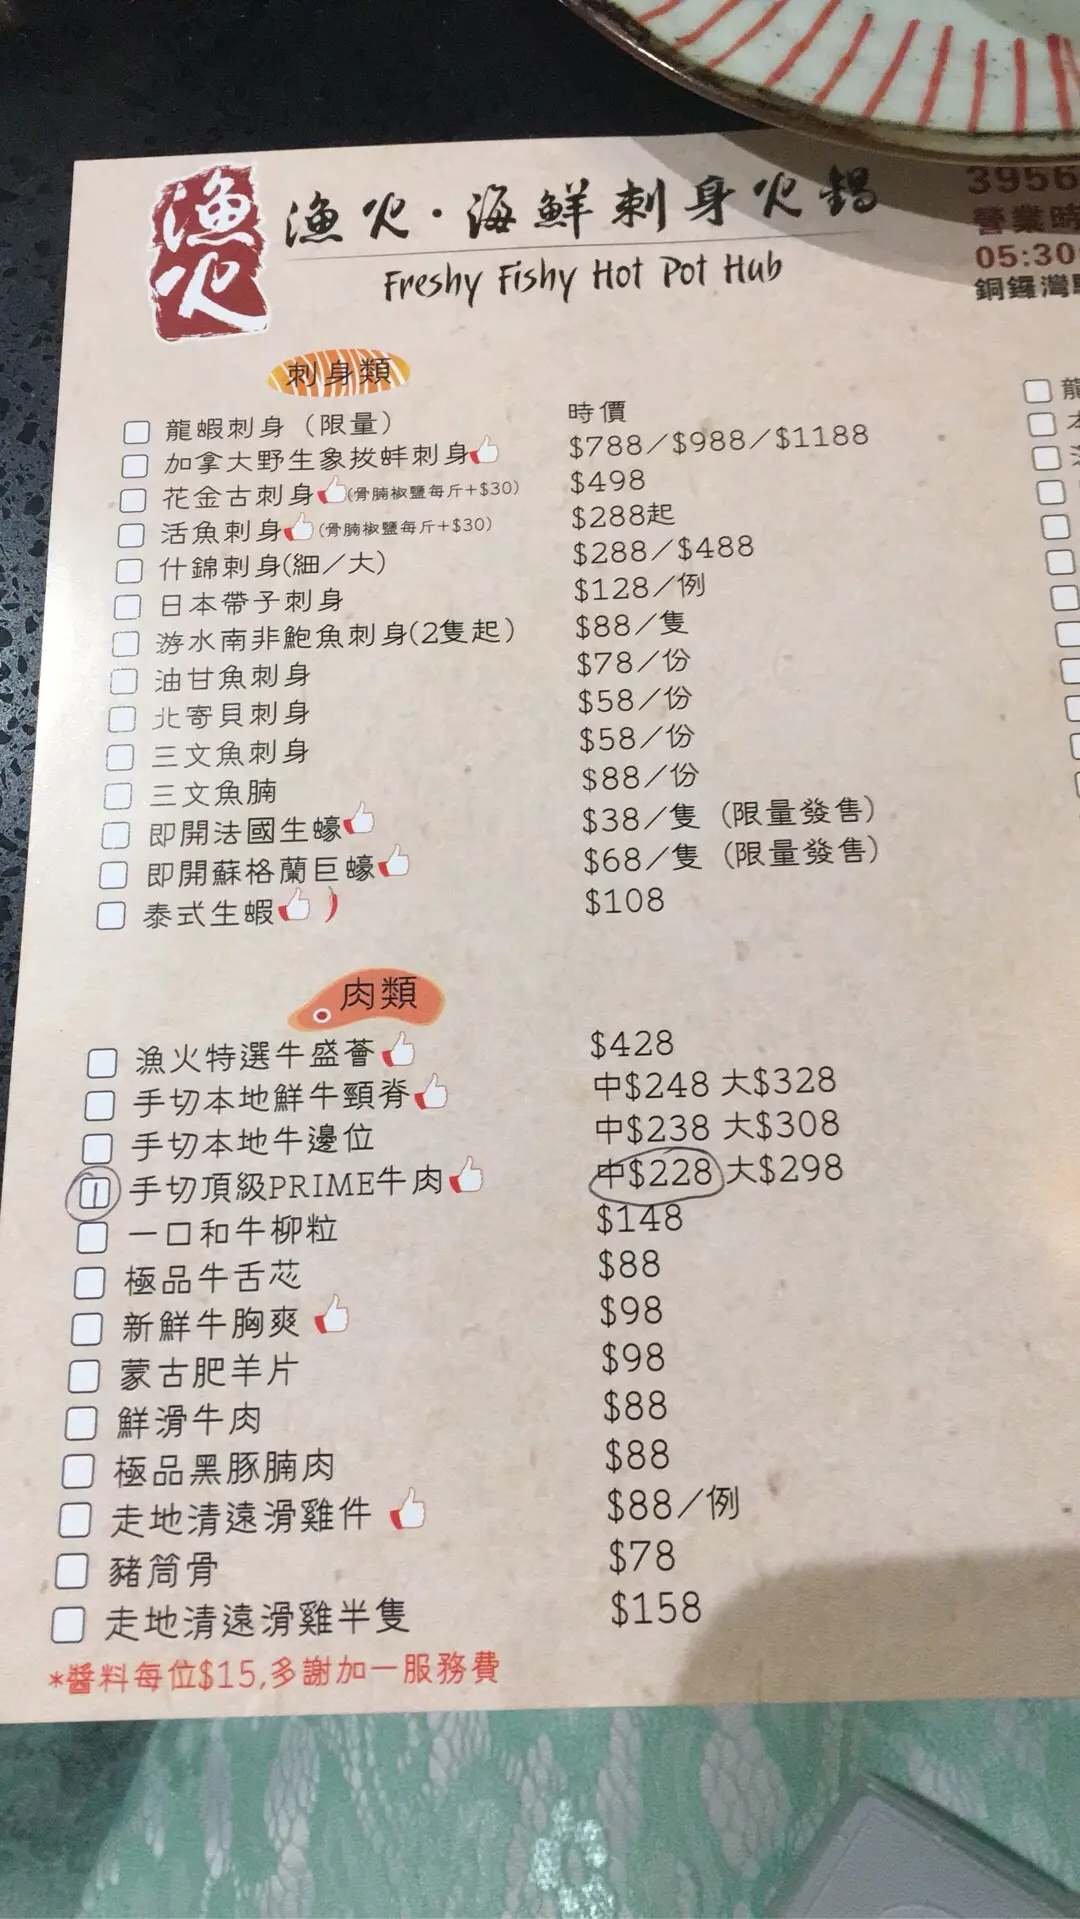 漁火
漁火·海鮮刺身火鍋
Freshy Fishy Hot Pot Hub
3956
營業時
05:30
銅鑼灣
刺身類
龍蝦刺身（限量） 時價
加拿大野生象拔蚌刺身 $788/$988/$1188
花金古刺身(骨腩椒鹽每斤+$30) $498
活魚刺身(骨腩椒鹽每斤+$30) $288起
什錦刺身(細/大) $288/$488
日本帶子刺身 $128/例
游水南非鮑魚刺身(2隻起) $88/隻
油甘魚刺身 $78/份
北寄貝刺身 $58/份
三文魚刺身 $58/份
三文魚腩 $88/份
即開法國生蠔 $38/隻（限量發售）
即開蘇格蘭巨蠔 $68/隻（限量發售）
泰式生蝦 $108
肉類
漁火特選牛盛薈 $428
手切本地鮮牛頸脊 中$248 大$328
手切本地牛邊位 中$238 大$308
手切頂級PRIME牛肉 中$228 大$298
一口和牛柳粒 $148
極品牛舌芯 $88
新鮮牛胸爽 $98
蒙古肥羊片 $98
鮮滑牛肉 $88
極品黑豚腩肉 $88
走地清遠滑雞件 $88/例
豬筒骨 $78
走地清遠滑雞半隻 $158
*醬料每位$15,多謝加一服務費